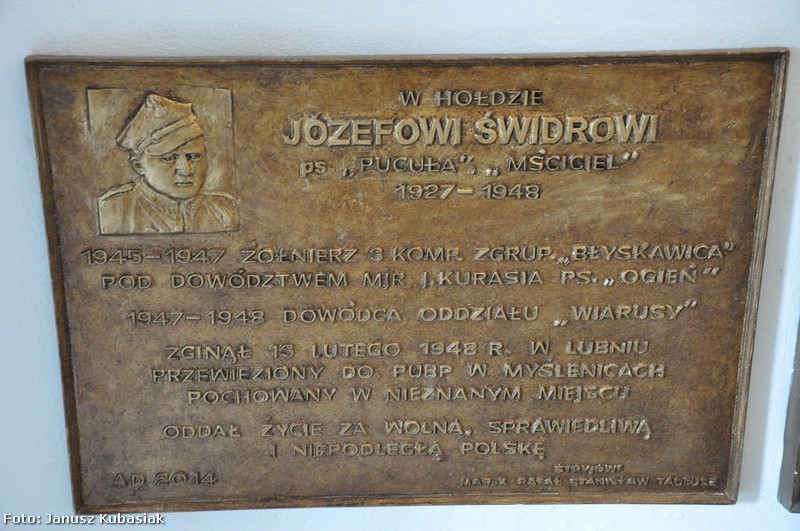 W HOŁDZIE
JÓZEFOWI ŚWIDROWI
ps. „PUCUŁA”, „MŚCICIEL”
1927-1948
1945-1947 ŻOŁNIERZ 3 KOMP. ZGRUP. „BŁYSKAWICA”
POD DOWÓDZTWEM MJR. J. KURASIA PS. „OGIEŃ”
1947-1948 DOWÓDCA ODDZIAŁU „WIARUSY”
ZGINĄŁ 13 LUTEGO 1948 R. W LUBNIU
PRZEWIEZIONY DO PUBP W MYŚLENICACH
POCHOWANY W NIEZNANYM MIEJSCU
ODDAŁ ŻYCIE ZA WOLNĄ, SPRAWIEDLIWĄ
I NIEPODLEGŁĄ POLSKĘ
AD 2014
STRYJOWI
MAREK RAFAŁ STANISŁAW TADEUSZ
Foto: Janusz Kubasiak